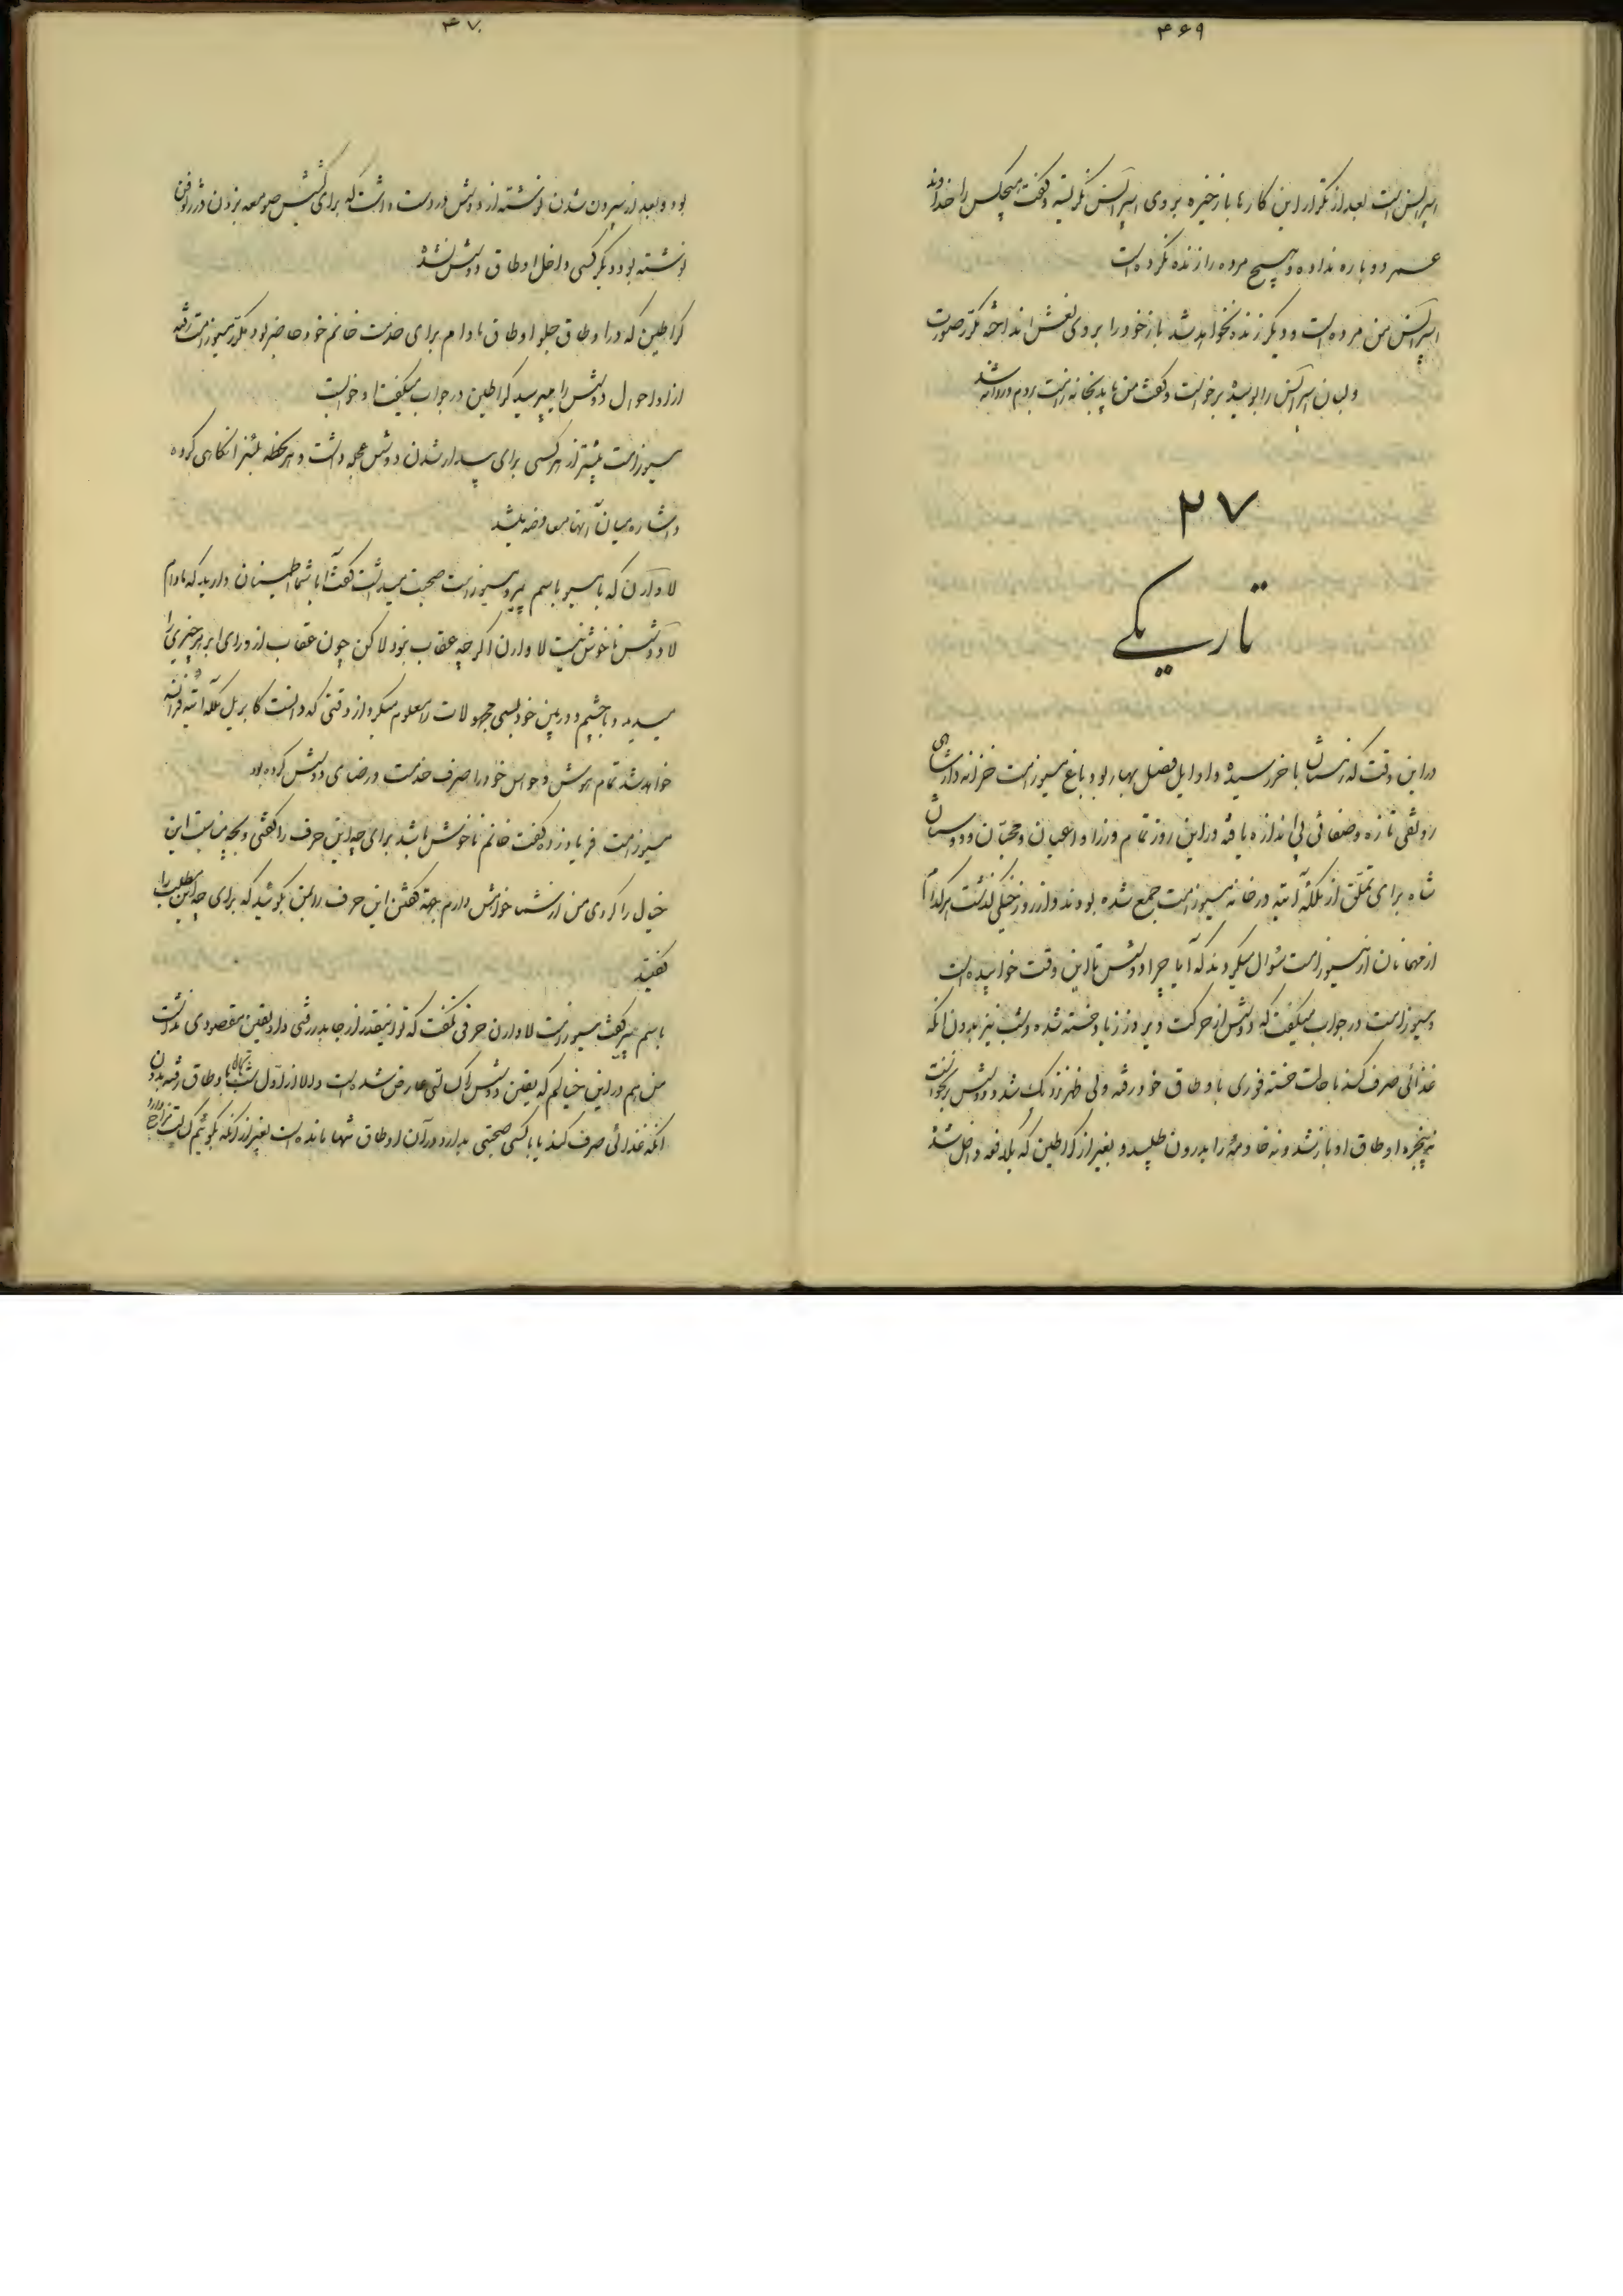 ۴۶۹
اسپرانس است بعد از تکرار این کارها باز خیره بروی اسپرانس نگریسته و گفت هیچکس را خداوند
عمر دوباره نداده و هیچ مرده را زنده نکرده است
اسپرانس من مرده است و دیگر زنده نخواهد شد باز خود را بروی نعش انداخته مکرر صورت
و لبان اسپرانس را بوسیده برخواست و گفت من باید بخانه زامت بروم و روانه شد
۲۷
تاریکی
در این وقت که زمستان باخر رسیده و اوایل فصل بهار بود و باغ مسیو زامت خزانه دار شاهی
رونقی تازه و صفائی بی اندازه یافته در این روز تمام وزرا و اعیان و محبّان و دوستان
شاه برای تملّق از ملکه آتیه در خانه مسیو زامت جمع شده بودند و از روز خیلی گذشت هر کدام
از مهمانان از مسیو زامت سئوال میکردند که آیا چرا دوشس تا این وقت خوابیده است
مسیو زامت در جواب میگفت که دوشس از حرکت دیروز زیاد خسته شده و شب نیز بدون آنکه
غذائی صرف کند با حالت خسته فوری باوطاق خود رفته ولی ظهر نزدیک شد و دوشس برنخواست
نه پنجره اوطاق او باز شد و نه خادمه را بدرون طلبید و بغیر از گراطین که بلافاصله داخل شد
۴۷۰
بود و بعد از بیرون شدن نوشته از دوشس در دست داشت که برای کشیش صومعه بزدن در رفتن
نوشته بود دیگر کسی داخل اوطاق دوشس نشد
گراطین که در اوطاق جلو اوطاق مادام برای خدمت خانم خود حاضر بود مکرر مسیو زامت رفته
از او احوال دوشس را میپرسید گراطین در جواب میگفت او خوابست
مسیو زامت بیشتر از هر کسی برای بیدار شدن دوشس عجله داشت و هر لحظه لبنرا نگاهی کرده
و اشاره میان آنها معاوضه میشد
لاوارن که با مسیو باسم پیر و مسیو زامت صحبت میداشت گفت آیا شما اطمینان دارید که مادام
لادوشس ناخوش نیست لاوارن اگرچه عقاب نبود لاکن چون عقاب از ورای ابر هر چیزی را
میدید و با چشم دوربین خود بسی مجهولات را معلوم میکرد از وقتی که دانست کابریل ملکه آتیه فرانسه
خواهد شد تمام هوش و حواس خود را صرف خدمت و رضای دوشس کرده بود
مسیو زامت فریاد زده گفت خانم ناخوش باشد برای چه این حرف را گفتی و بچه مناسبت این
خیال را کردی من از شما خواهش دارم بجهة گفتن این حرف را بمن بگوئید که برای چه این مطلب را
گفتید
باسم پیر گفت مسیو زامت لاوارن حرفی نگفت که تو اینقدر از جا بدر رفتی و او یقین مقصودی نداشت
من هم در این خیالم که یقین دوشس را کسالتی عارض شده است والا از اول شب تنها باوطاق رفته بدون
آنکه غذائی صرف کند یا با کسی صحبتی بدارد در آن اوطاق تنها مانده است بغیر از آنکه بگوئیم کسالت مزاج دارد